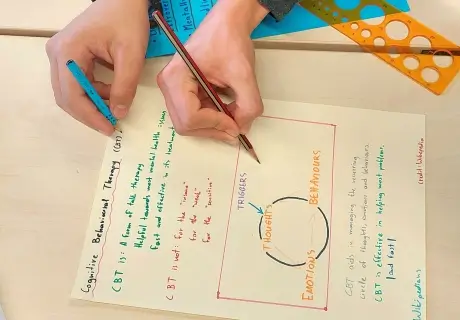 Cognitive Behavioural Therapy (CBT).
CBT is: A form of talk therapy
Helpful towards most mental health issues
Fast and effective in its treatment
CBT is not: For the "insane"
for the "weak"
for the "sensitive"
TRIGGERS
THOUGHTS
BEHAVIOURS
EMOTIONS
CBT aids in managing the recurring
circle of thoughts, emotions and behaviours.
CBT is effective in helping most problems,
(and fast)
credit: Wikipedia
Wikipedians